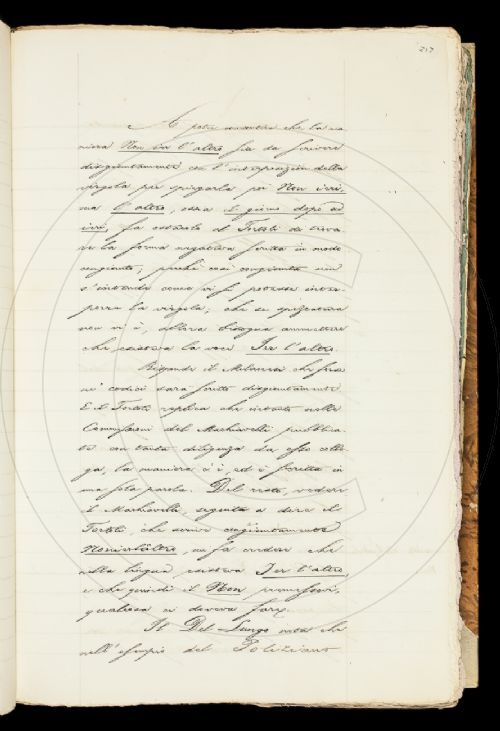 217
A poter sostenere che la ma
niera Non ier l'altro sia da scrivere
disgiuntamente con l'interposizione della
virgola per spiegarla poi Non ieri,
ma l'altro, ossia il giorno dopo ad
ieri, fa ostacolo il Tortoli di trova
re la forma negativa scritta in modo
congiunto, perché così congiunta non
s'intende come vi si potesse inter
porre la virgola; che se spiegatura
non vi è, allora bisogna ammettere
che esisteva la voce Ier l'altro.
Risponde il Milanesi che fors
ne' codici sarà scritto disgiuntamente
E il Tortoli replica che intanto nelle
Commissioni del Machiavelli pubblica
te con tanta diligenza da esso colle
ga, la maniera c'è, ed è scritta in
una sola parola. Del resto, vedere
il Machiavelli, seguita a dire il
Tortoli, che scrive congiuntamente
Nonierlaltro, mi fa credere che
nella lingua esisteva Ier l'altro,
e che quindi il Non premessovi,
qualcosa ci doveva fare.
Il Del-Lungo nota che
nell'esempio del Poliziano